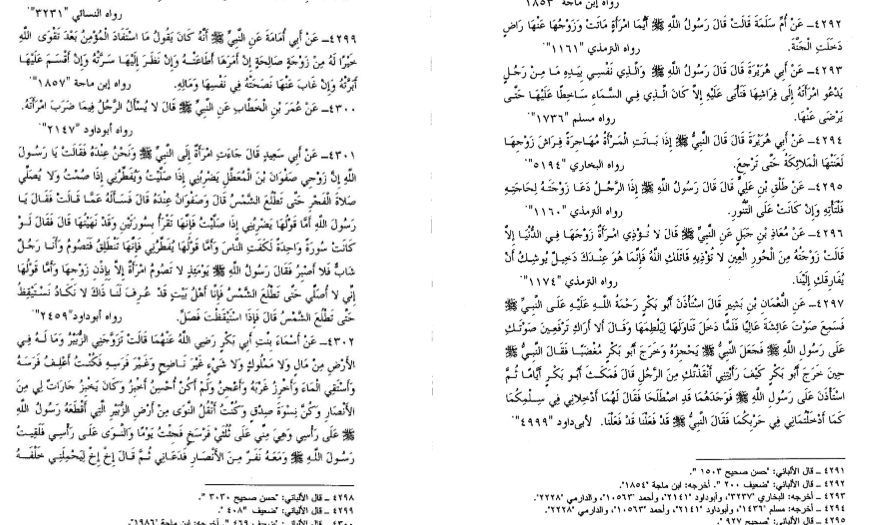 رواه ابن ماجة "١٨٥٣".
٤٢٩٢ـ عَنْ أُمِّ سَلَمَةَ قَالَتْ قَالَ رَسُولُ اللَّهِ ﷺ أَيُّمَا امْرَأَةٍ مَاتَتْ وَزَوْجُهَا عَنْهَا رَاضٍ
دَخَلَتِ الْجَنَّةَ. رواه الترمذي "١١٦١".
٤٢٩٣ـ عَنْ أَبِي هُرَيْرَةَ قَالَ قَالَ رَسُولُ اللَّهِ ﷺ وَالَّذِي نَفْسِي بِيَدِهِ مَا مِنْ رَجُلٍ
يَدْعُو امْرَأَتَهُ إِلَى فِرَاشِهَا فَتَأْبَى عَلَيْهِ إِلَّا كَانَ الَّذِي فِي السَّمَاءِ سَاخِطًا عَلَيْهَا حَتَّى
يَرْضَى عَنْهَا. رواه مسلم "١٧٣٦".
٤٢٩٤ـ عَنْ أَبِي هُرَيْرَةَ قَالَ قَالَ النَّبِيُّ ﷺ إِذَا بَاتَتِ الْمَرْأَةُ مُهَاجِرَةً فِرَاشَ زَوْجِهَا
لَعَنَتْهَا الْمَلَائِكَةُ حَتَّى تَرْجِعَ. رواه البخاري "٥١٩٤".
٤٢٩٥ـ عَنْ طَلْقِ بْنِ عَلِيٍّ قَالَ قَالَ رَسُولُ اللَّهِ ﷺ إِذَا الرَّجُلُ دَعَا زَوْجَتَهُ لِحَاجَتِهِ
فَلْتَأْتِهِ وَإِنْ كَانَتْ عَلَى التَّنُّورِ. رواه الترمذي "١١٦٠".
٤٢٩٦ـ عَنْ مُعَاذِ بْنِ جَبَلٍ عَنِ النَّبِيِّ ﷺ قَالَ لَا تُؤْذِي امْرَأَةٌ زَوْجَهَا فِي الدُّنْيَا إِلَّا
قَالَتْ زَوْجَتُهُ مِنَ الْحُورِ الْعِينِ لَا تُؤْذِيهِ قَاتَلَكِ اللَّهُ فَإِنَّمَا هُوَ عِنْدَكِ دَخِيلٌ يُوشِكُ أَنْ
يُفَارِقَكِ إِلَيْنَا. رواه الترمذي "١١٧٤".
٤٢٩٧ـ عَنِ النُّعْمَانِ بْنِ بَشِيرٍ قَالَ اسْتَأْذَنَ أَبُو بَكْرٍ رَحْمَةُ اللَّهِ عَلَيْهِ عَلَى النَّبِيِّ ﷺ
فَسَمِعَ صَوْتَ عَائِشَةَ عَالِيًا فَلَمَّا دَخَلَ تَنَاوَلَهَا لِيَلْطِمَهَا وَقَالَ أَلَا أَرَاكِ تَرْفَعِينَ صَوْتَكِ
عَلَى رَسُولِ اللَّهِ ﷺ فَجَعَلَ النَّبِيُّ ﷺ يَحْجِزُهُ وَخَرَجَ أَبُو بَكْرٍ مُغْضَبًا فَقَالَ النَّبِيُّ ﷺ
حِينَ خَرَجَ أَبُو بَكْرٍ كَيْفَ رَأَيْتِنِي أَنْقَذْتُكِ مِنَ الرَّجُلِ قَالَ فَمَكَثَ أَبُو بَكْرٍ أَيَّامًا ثُمَّ
اسْتَأْذَنَ عَلَى رَسُولِ اللَّهِ ﷺ فَوَجَدَهُمَا قَدِ اصْطَلَحَا فَقَالَ لَهُمَا أَدْخِلَانِي فِي سِلْمِكُمَا
كَمَا أَدْخَلْتُمَانِي فِي حَرْبِكُمَا فَقَالَ النَّبِيُّ ﷺ قَدْ فَعَلْنَا قَدْ فَعَلْنَا. لأبى داود "٤٩٩٩".
٤٢٩١ ـ قال الألباني: "حسن صحيح ١٥٠٣ ".
٤٢٩٢ ـ قال الألباني: "ضعيف ٢٠٠ ". أخرجه: ابن ماجة "١٨٥٤".
٤٢٩٣ ـ أخرجه: البخاري "٣٢٣٧"، وأبوداود "٢١٤١"، وأحمد "١٠٥٦٣"، والدارمي "٢٢٢٨".
٤٢٩٤ ـ أخرجه: مسلم "١٤٣٦"، وأبوداود "٢١٤١"، وأحمد "١٠٥٦٣"، والدارمي "٢٢٢٨".
٤٢٩٥ ـ قال الألباني: "صحيح ٩٢٧ ".
رواه النسائي "٣٢٣١".
٤٢٩٩ـ عَنْ أَبِي أُمَامَةَ عَنِ النَّبِيِّ ﷺ أَنَّهُ كَانَ يَقُولُ مَا اسْتَفَادَ الْمُؤْمِنُ بَعْدَ تَقْوَى اللَّهِ
خَيْرًا لَهُ مِنْ زَوْجَةٍ صَالِحَةٍ إِنْ أَمَرَهَا أَطَاعَتْهُ وَإِنْ نَظَرَ إِلَيْهَا سَرَّتْهُ وَإِنْ أَقْسَمَ عَلَيْهَا
أَبَرَّتْهُ وَإِنْ غَابَ عَنْهَا نَصَحَتْهُ فِي نَفْسِهَا وَمَالِهِ. رواه ابن ماجة "١٨٥٧".
٤٣٠٠ـ عَنْ عُمَرَ بْنِ الْخَطَّابِ عَنِ النَّبِيِّ ﷺ قَالَ لَا يُسْأَلُ الرَّجُلُ فِيمَا ضَرَبَ امْرَأَتَهُ.
رواه أبوداود "٢١٤٧".
٤٣٠١ـ عَنْ أَبِي سَعِيدٍ قَالَ جَاءَتِ امْرَأَةٌ إِلَى النَّبِيِّ ﷺ وَنَحْنُ عِنْدَهُ فَقَالَتْ يَا رَسُولَ
اللَّهِ إِنَّ زَوْجِي صَفْوَانَ بْنَ الْمُعَطَّلِ يَضْرِبُنِي إِذَا صَلَّيْتُ وَيُفَطِّرُنِي إِذَا صُمْتُ وَلَا يُصَلِّي
صَلَاةَ الْفَجْرِ حَتَّى تَطْلُعَ الشَّمْسُ قَالَ وَصَفْوَانُ عِنْدَهُ قَالَ فَسَأَلَهُ عَمَّا قَالَتْ فَقَالَ يَا
رَسُولَ اللَّهِ أَمَّا قَوْلُهَا يَضْرِبُنِي إِذَا صَلَّيْتُ فَإِنَّهَا تَقْرَأُ بِسُورَتَيْنِ وَقَدْ نَهَيْتُهَا قَالَ فَقَالَ لَوْ
كَانَتْ سُورَةً وَاحِدَةً لَكَفَتِ النَّاسَ وَأَمَّا قَوْلُهَا يُفَطِّرُنِي فَإِنَّهَا تَنْطَلِقُ فَتَصُومُ وَأَنَا رَجُلٌ
شَابٌّ فَلَا أَصْبِرُ فَقَالَ رَسُولُ اللَّهِ ﷺ يَوْمَئِذٍ لَا تَصُومُ امْرَأَةٌ إِلَّا بِإِذْنِ زَوْجِهَا وَأَمَّا قَوْلُهَا
إِنِّي لَا أُصَلِّي حَتَّى تَطْلُعَ الشَّمْسُ فَإِنَّا أَهْلُ بَيْتٍ قَدْ عُرِفَ لَنَا ذَاكَ لَا نَكَادُ نَسْتَيْقِظُ
حَتَّى تَطْلُعَ الشَّمْسُ قَالَ فَإِذَا اسْتَيْقَظْتَ فَصَلِّ. رواه أبوداود "٢٤٥٩".
٤٣٠٢ـ عَنْ أَسْمَاءَ بِنْتِ أَبِي بَكْرٍ رَضِيَ اللَّهُ عَنْهُمَا قَالَتْ تَزَوَّجَنِي الزُّبَيْرُ وَمَا لَهُ فِي
الْأَرْضِ مِنْ مَالٍ وَلَا مَمْلُوكٍ وَلَا شَيْءٍ غَيْرَ نَاضِحٍ وَغَيْرَ فَرَسِهِ فَكُنْتُ أَعْلِفُ فَرَسَهُ
وَأَسْتَقِي الْمَاءَ وَأَخْرِزُ غَرْبَهُ وَأَعْجِنُ وَلَمْ أَكُنْ أُحْسِنُ أَخْبِزُ وَكَانَ يَخْبِزُ جَارَاتٌ لِي مِنَ
الْأَنْصَارِ وَكُنَّ نِسْوَةَ صِدْقٍ وَكُنْتُ أَنْقُلُ النَّوَى مِنْ أَرْضِ الزُّبَيْرِ الَّتِي أَقْطَعَهُ رَسُولُ اللَّهِ
ﷺ عَلَى رَأْسِي وَهِيَ مِنِّي عَلَى ثُلُثَيْ فَرْسَخٍ فَجِئْتُ يَوْمًا وَالنَّوَى عَلَى رَأْسِي فَلَقِيتُ
رَسُولَ اللَّهِ ﷺ وَمَعَهُ نَفَرٌ مِنَ الْأَنْصَارِ فَدَعَانِي ثُمَّ قَالَ إِخْ إِخْ لِيَحْمِلَنِي خَلْفَهُ
٤٢٩٨ ـ قال الألباني: "حسن صحيح ٣٠٣٠ ".
٤٢٩٩ ـ قال الألباني: "ضعيف ٤٠٨ ".
٤٣٠٠ ـ قال الألباني: "ضعيف ٤٦٩ ". أخرجه: ابن ماجة "١٩٨٦".